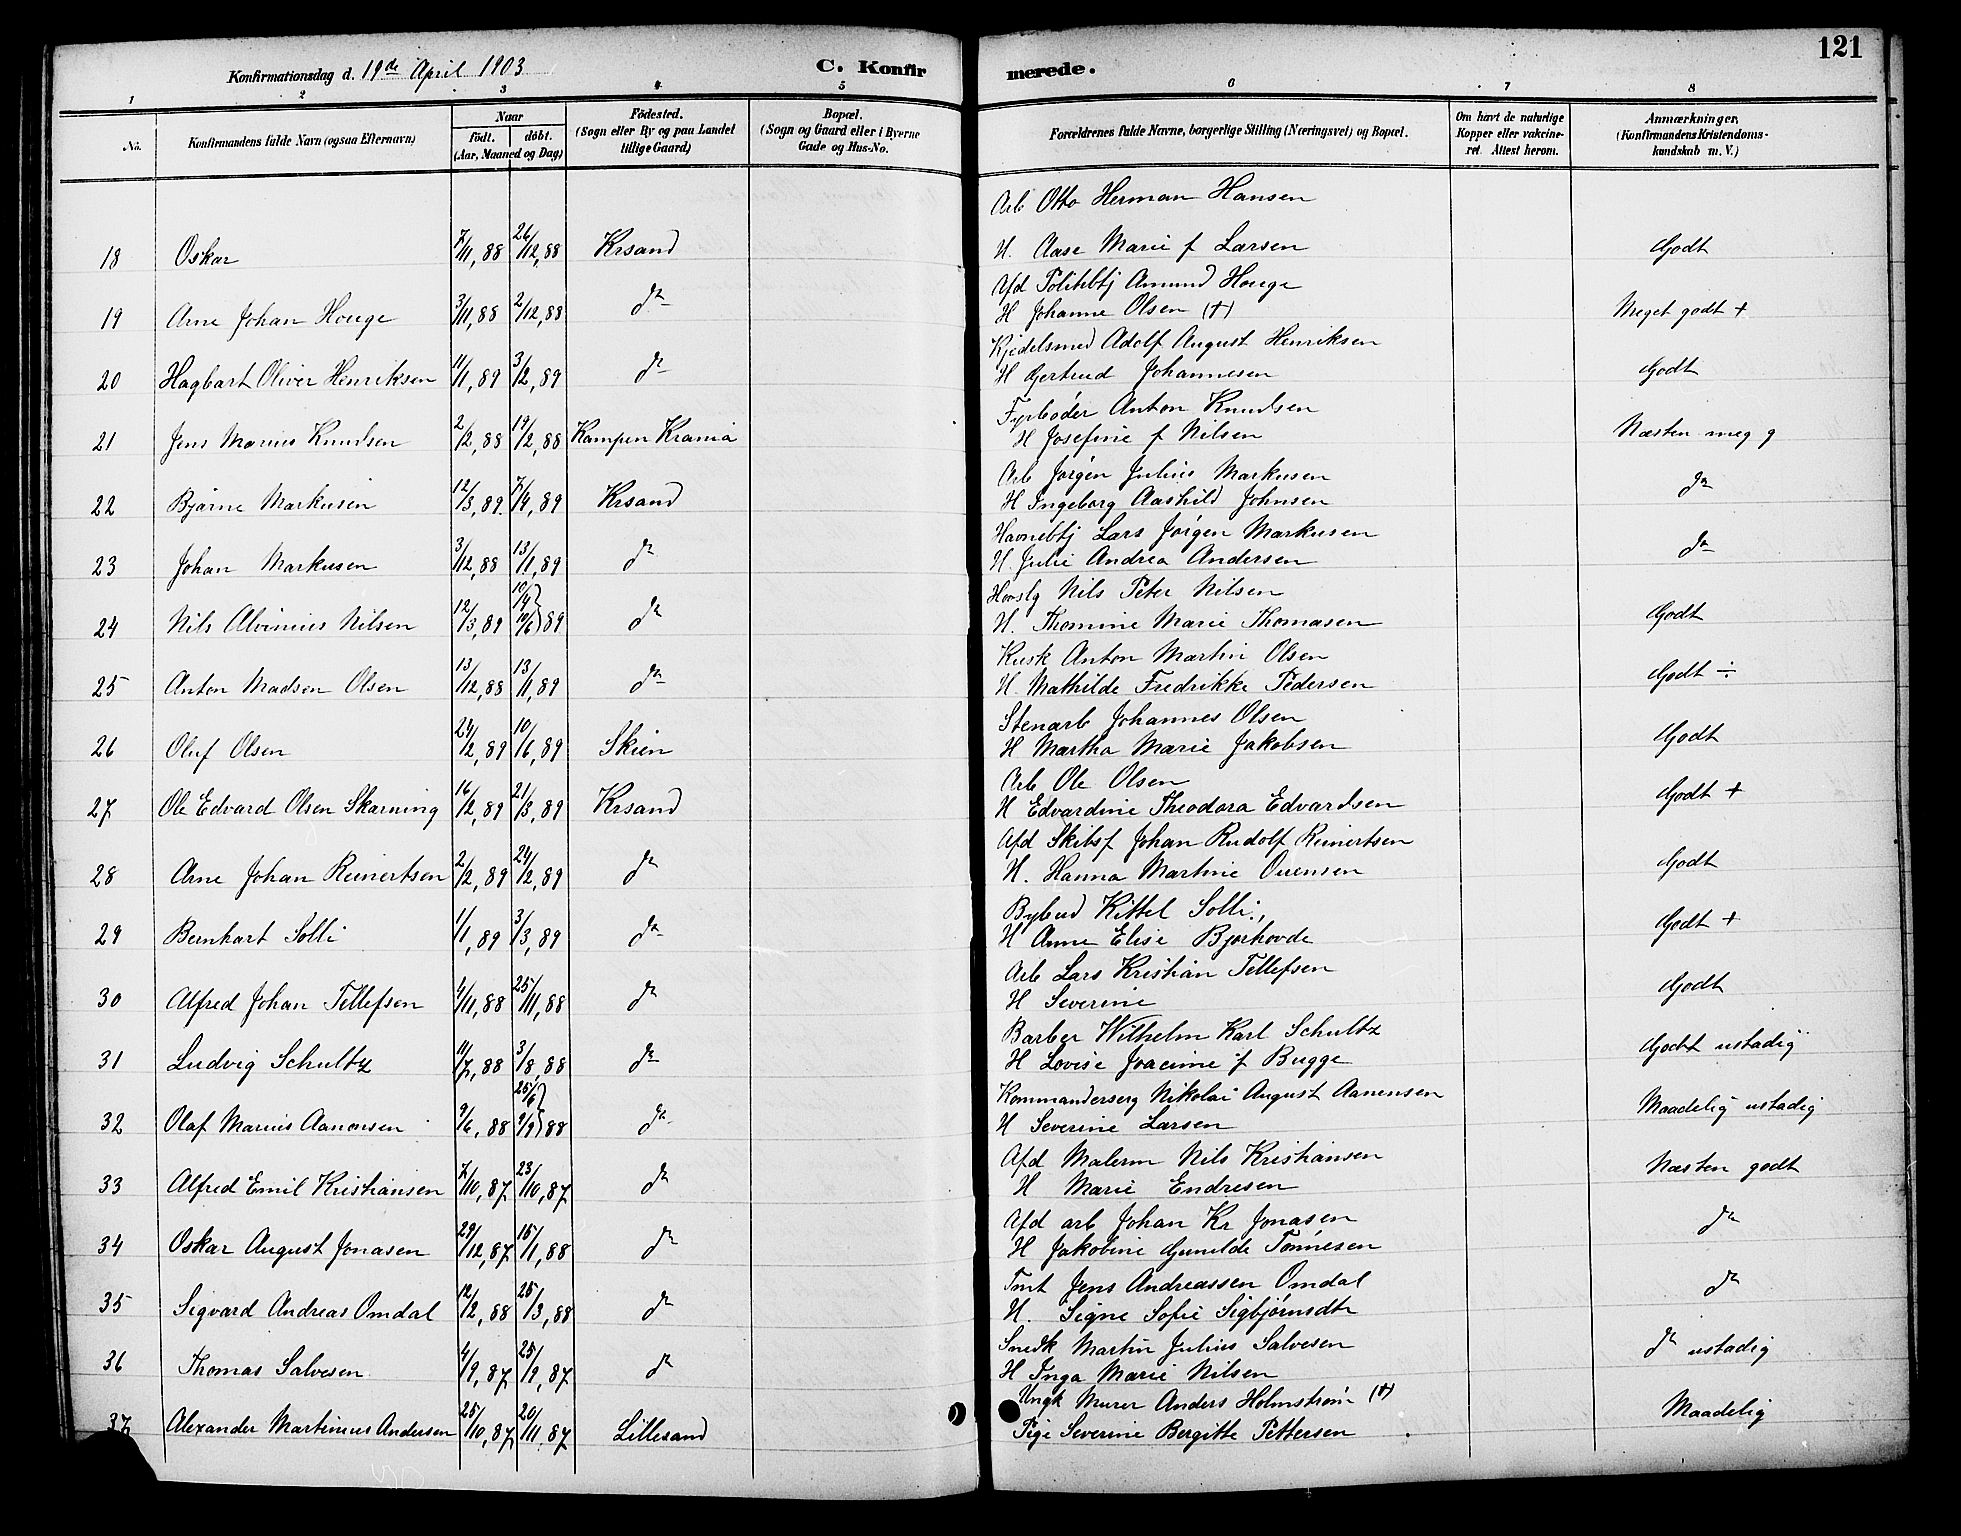 Konfirmationsdag d. 19de April 1903 C. Konfirmerede. 121
1 2 3 4 5 6 7 8
No. Konfirmandens fulde Navn (ogsaa Efternavn) Naar födt. döbt. (Aar, Maaned og Dag) Födested. (Sogn eller By og paa Landet tillige Gaard) Bopæl. (Sogn og Gaard eller i Byerne Gade og Hus-No. Forældrenes fulde Navne, borgerlige Stilling (Næringsvei) og Bopæl. Om havt de naturlige Kopper eller vakcineret. Attest herom. Anmærkninger, (Konfirmandens Kristendomskundskab m. V.)
Arb Otto Herman Hansen
18 Oskar 7/11, 88 26/12, 88 Krsand H. Aase Marie f Larsen Godt
Afd Politibtj Amund Houge
19 Arne Johan Houge 3/11, 88 2/12, 88 do H Johanne Olsen (†) Meget godt +
Kjedelsmed Adolf August Henriksen
20 Hagbart Oliver Henriksen 11/1, 89 3/2, 89 do H Gertrud Johannesen Godt
Fyrböder Anton Knudsen
21 Jens Marius Knudsen 2/2, 88 19/2, 88 Kampen Krania H Josefine f Nilsen Næsten meg g
Arb Jörgen Julius Markusen
22 Bjarne Markusen 12/3, 89. 7/4, 89 Krsand H Ingeborg Aashild Johnsen do
Havnebtj Lars Jörgen Markusen
23 Johan Markusen 3/12, 88 13/1, 89 do H. Julie Andrea Andersen do
Nils Peter Nilsen
24 Nils Alvinius Nilsen 12/3, 89 10/4 } 10/6 } 89 do H. Thomine Marie Thomasen Godt
Kusk Anton Martin Olsen
25 Anton Madsen Olsen 13/12, 88 13/1, 89 do H. Mathilde Fredrikke Pedersen Godt ÷
Stenarb Johannes Olsen
26 Oluf Olsen 24/2, 89 10/6, 89 Skien H Martha Marie Jakobsen Godt
Arb Ole Olsen
27 Ole Edvard Olsen Skarning 16/2, 89 21/3, 89 Krsand H Edvardine Theodora Edvardsen Godt +
Afd Skibsf Johan Rudolf Reinertsen
28 Arne Johan Reinertsen 2/2, 89 24/2, 89 do H. Hanna Martine Ouensen Godt
Bybud Kittel Solli,
29 Bernhart Solli 1/1, 89 3/3, 89 do H Anne Elise Bjorhovde Godt +
Arb Lars Kristian Tellefsen
30 Alfred Johan Tellefsen 4/11, 88 25/11, 88 do H Severine Godt
Barber Wilhelm Karl Schultz
31 Ludvig Schultz 11/7, 88 3/8, 88 do H Lovise Joacime f Bugge Godt ustadig
Kommanderserg Nikolai August Aanensen
32 Olaf Marius Aanonsen 9/6, 88 25/6 } 9/9 } 88 do H Severine Larsen Maadelig ustadig
Afd Malerm Nils Kristiansen
33 Alfred Emil Kristiansen 7/10, 87 23/10, 87 do H Marie Endresen Næsten godt
Afd arb Johan Kr Jonasen
34 Oskar August Jonasen 29/12, 87 15/1, 88 do H Jakobine Gunilde Tönnesen do
Tmt Jens Andreassen Omdal
35 Sigvard Andreas Omdal 12/2, 88 25/3, 88 do H. Signe Sofie Sigbjörnsdtr do
Snedk Martin Julius Salvesen
36 Thomas Salvesen 4/9, 87 25/9, 87 do H Inga Marie Nilsen do ustadig
Ungk Murer Anders Holmström (†)
37 Alexander Martinius Andersen 25/10, 87 20/11, 87 Lillesand Pige Severine Bergitte Pettersen Maadelig